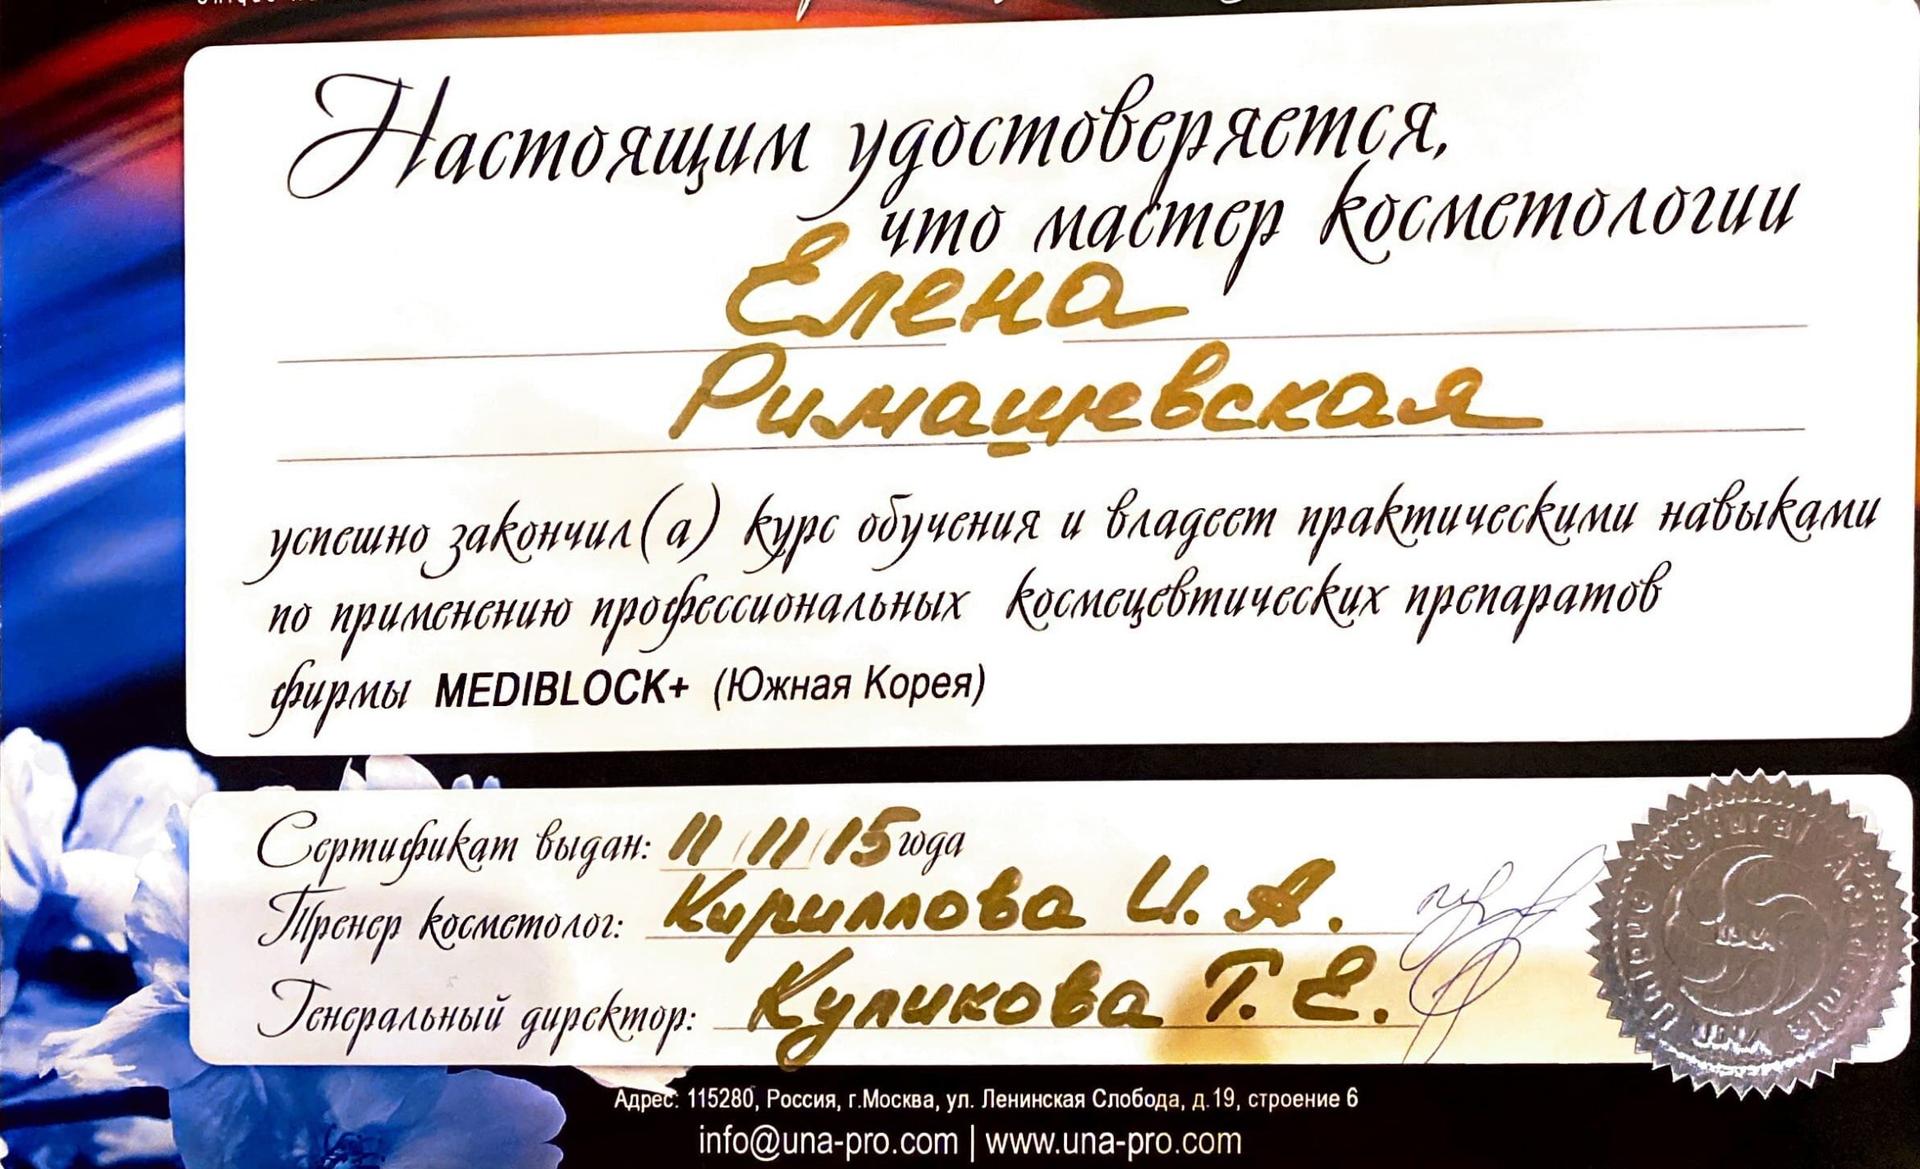 Настоящим удостоверяется,
что мастер косметологии
Елена
Римашевская
успешно закончил(а) курс обучения и владеет практическими навыками
по применению профессиональных космецевтических препаратов
фирмы MEDIBLOCK+ (Южная Корея)
Сертификат выдан: 11/11/15 года
Тренер косметолог: Кириллова И. А.
Генеральный директор: Куликова Т. Е.
Unique Natural Academia
UNA
UNA
Адрес: 115280, Россия, г.Москва, ул. Ленинская Слобода, д.19, строение 6
info@una-pro.com | www.una-pro.com